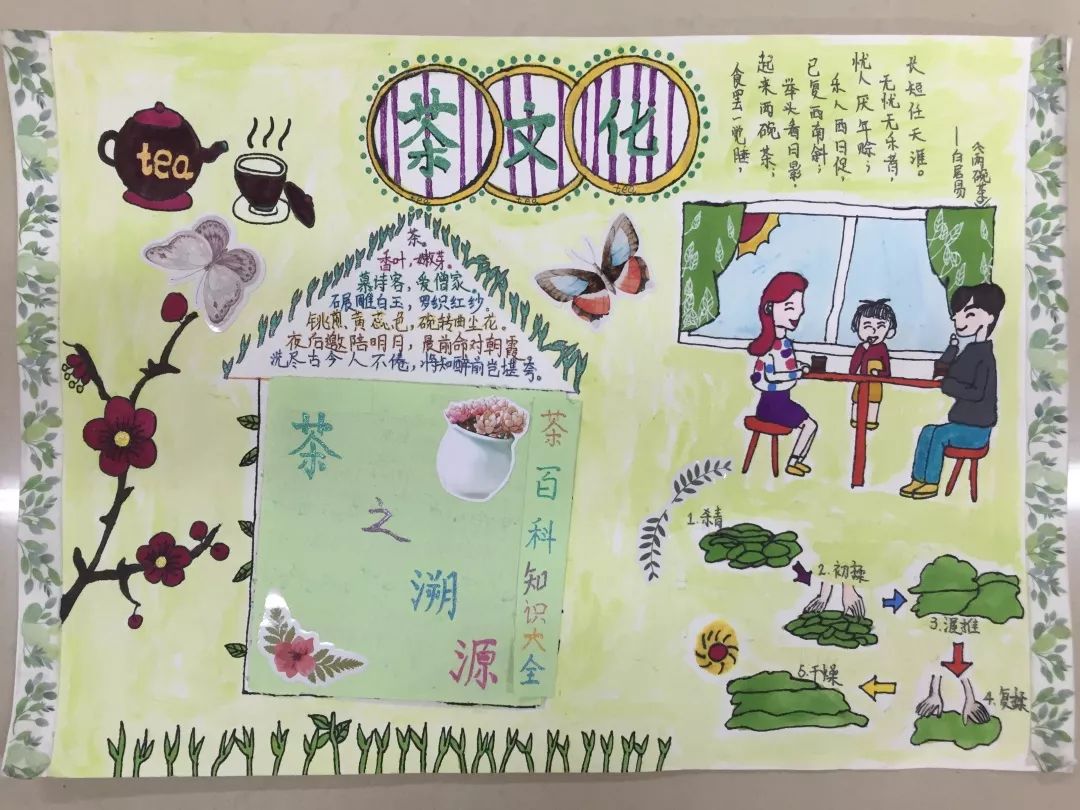 茶文化
tea
tea
tea
tea
食罢一觉睡，
起来两碗茶；
举头看日影，
已复西南斜；
乐人西日促，
忧人厌年赊；
无忧无乐者，
长短任天涯。
《两碗茶》
——白居易
茶。
香叶，嫩芽。
慕诗客，爱僧家。
碾雕白玉，罗织红纱。
铫煎黄蕊色，碗转曲尘花。
夜后邀陪明月，晨前命对朝霞
洗尽古今人不倦，将知醉前岂堪夸。
茶之溯源
茶百科知识大全
1.杀青
2.初揉
3.渥推
4.复揉
5.干燥